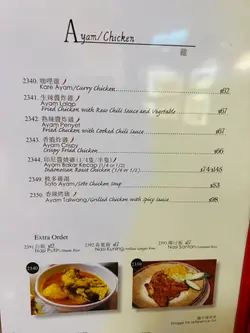 Ayam/Chicken
雞
2340. 咖哩雞
Kare Ayam/Curry Chicken
2341. 生辣醬炸雞
Ayam Lalap
Fried Chicken with Raw Chili Sauce and Vegetable $67
2342. 熟辣醬炸雞
Ayam Penyet
Fried Chicken with Cooked Chili Sauce $67
2343. 香脆炸雞
Ayam Crispy
Crispy Fried Chicken $66
2344. 印尼醬燒雞 (1/4隻/半隻)
Ayam Bakar Kecap (1/4 or 1/2)
Indonesian Roast Chicken (1/4 or 1/2) $74
2349.
Soto Ayam/Soto Chicken Soup
2350. 香辣烤雞
Ayam Taliwang/Grilled Chicken with spicy sauce $98
Extra Order
2391. 白飯
Nasi Putih
2392.
Nasi Kuning
2393. 椰汁飯
Nasi Santan
2340
2350